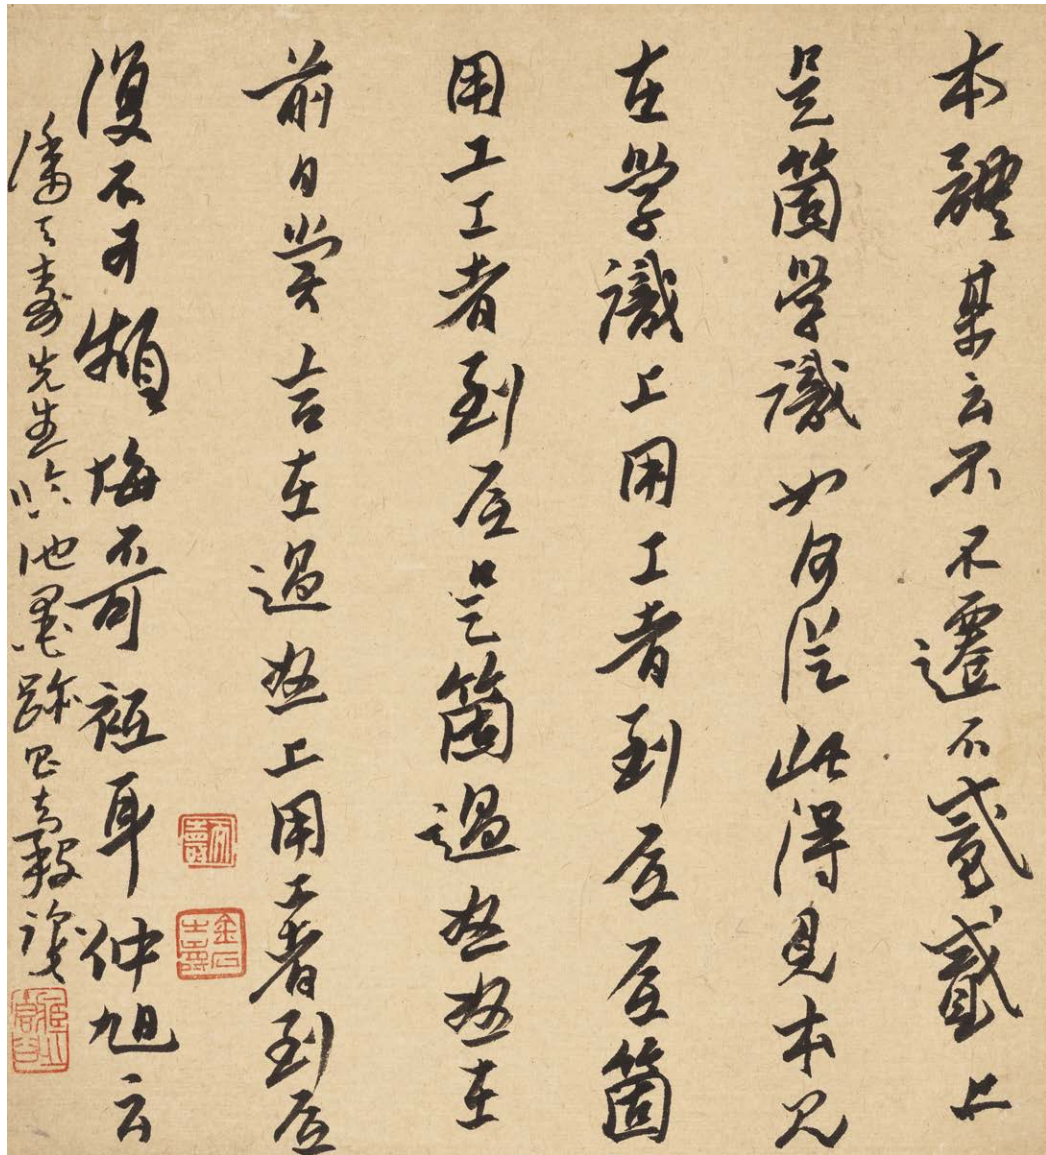 本體某云不不遷不貳貳上
是箇學識如何從此得見本見
在學識上用工者到底底箇
用工工者到底是箇過怒怒在
前日嘗言在過怒上用工者到底
復不可頻悔不可祗耳仲旭云
潘天壽先生臨池墨跡